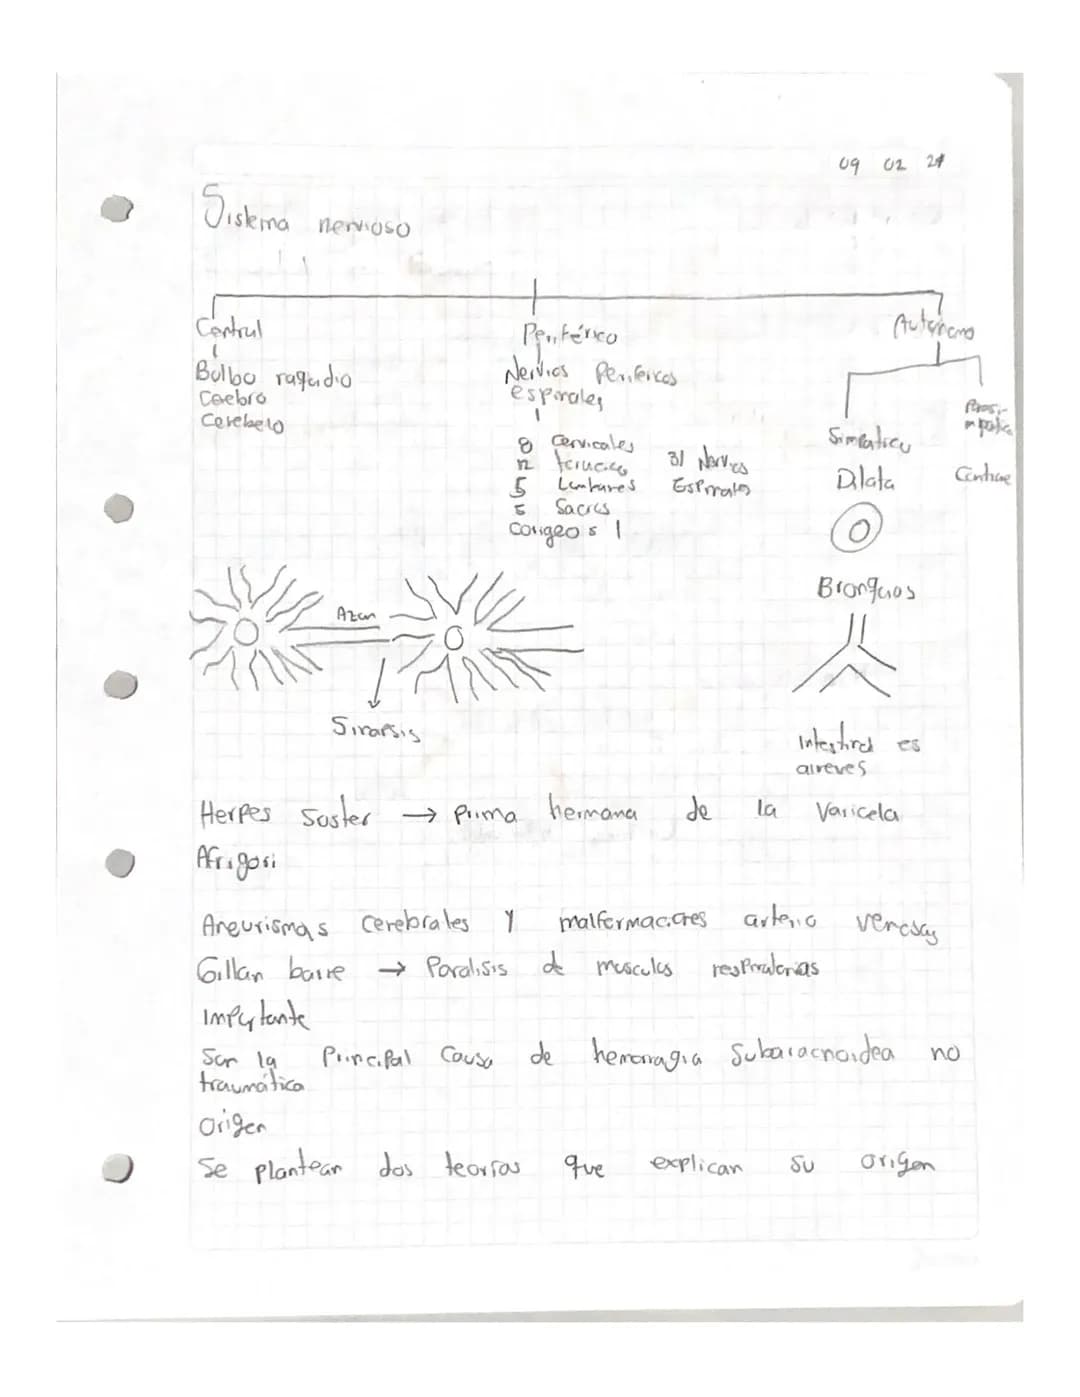 09 02 24
Sistema nervioso
Central
Bulbo raquidio
Cerebro
Cerebelo
Periférico
Nervios Perifericos
espirales
8 Cervicales
12
5 Lumbares
5 Sacros
Coxigeos 1
31 Nervios
Espirales
Autónomo
Simpatico
Dilata
Parasi-
mpatico
Contrae
Bronquios
Intestinal es
alreves
Azon
Sinapsis
Herpes Soster → Prima hermana de la Varicela
Afrigori
Aneurismas cerebrales y malformaciones arterio venosas
Gillan barre → Paralisis de musculos respiratorias
Importante
Son la Principal Causa de hemorragia Subaracnoidea no
traumática
Origen
Se plantean dos teorías que explican su origen